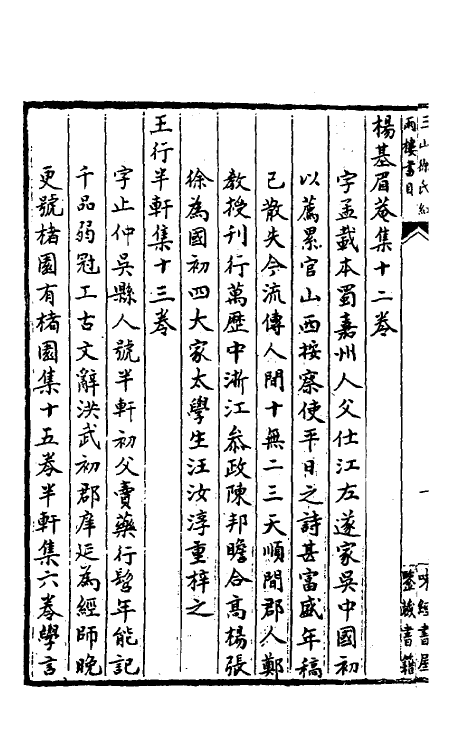 三山徐氏紅
雨樓書目
一
味經書屋
鑒藏書籍
楊基眉菴集十二卷
字孟載本蜀嘉州人父仕江左遂家吳中國初
以薦累官山西按察使平日之詩甚富盛年稿
已散失今流傳人間十無二三天順間郡人鄭
教授刊行萬歷中浙江叅政陳邦瞻合高楊張
徐為國初四大家太學生汪汝淳重梓之
王行半軒集十三卷
字止仲吳縣人號半軒初父賣藥行髫年能記
千品弱冠工古文辭洪武初郡庠延為經師晚
更號楮園有楮園集十五卷半軒集六卷學言